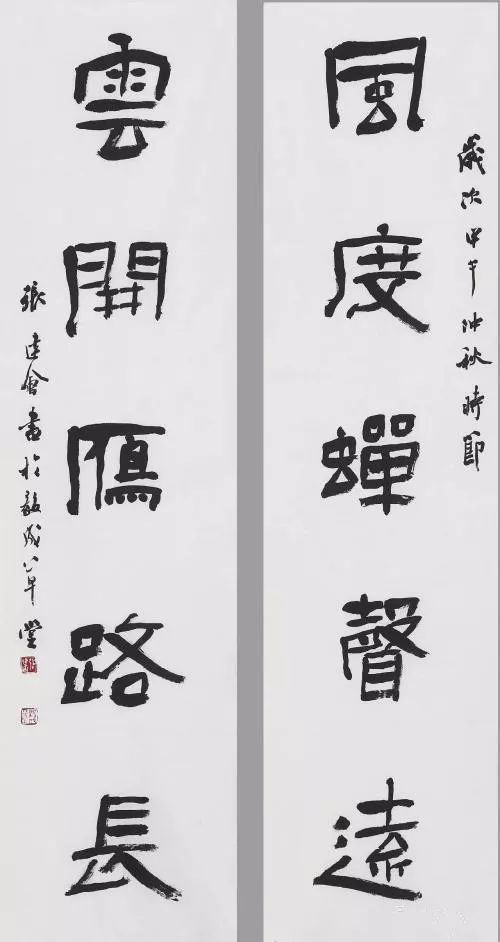 歲次甲午仲秋時節
風度蟬聲遠
雲開鴈路長
張建會書於草堂